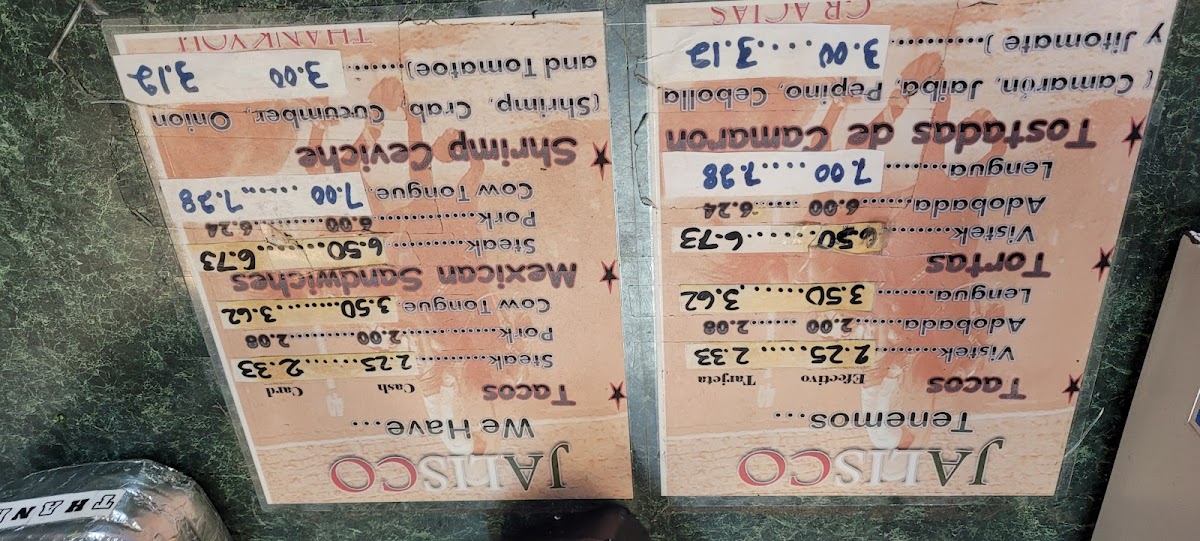 JALISCO
Tenemos...
Efectivo Tarjeta
Tacos
Vistek..........2.25.... 2.33
Adobada.......2.00 .....2.08
Lengua..........3.50......3.62
Tortas
Vistek..........6.50......6.73
Adobada.......6.00 ......6.24
Lengua..........7.00....7.28
Tostadas de Camarón
( Camarón, Jaiba, Pepino, Cebolla
y Jitomate )..........3.00....3.12
GRACIAS
JALISCO
We Have...
Cash Card
Tacos
Steak..........2.25......2.33
Pork...............2.00.....2.08
Cow Tongue. 3.50......3.62
Mexican Sandwiches
Steak..........6.50......6.73
Pork...............6.00.......6.24
Cow Tongue. 7.00 ......7.28
Shrimp Ceviche
(Shrimp, Crab, Cucumber, Onion
and Tomatoe)......3.00 3.12
THANK YOU
THAN